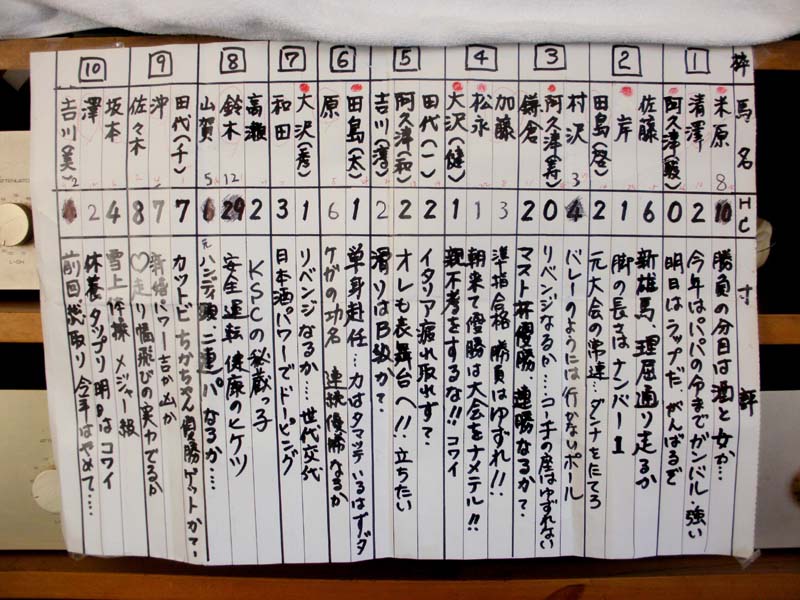 枠 馬名 HC 寸評
1 米原 8 10 勝負の分目は酒と女か…
清澤 2 今年はパパの分までガンバル・強い
阿久津(毅) 0 明日はラップだ、がんばるぞ
2 佐藤 6 新雄馬、理屈通り走るか
岸 1 脚の長さはナンバー1
田島(啓) 2 元大会の常連…ダンナをたてろ
3 村沢 3 4 バレーのようには行かないポール
阿久津(寿) 0 リベンジなるか…コーチの座はゆずれない
鎌倉 2 マスト杯優勝 連勝なるか?
4 加藤 3 準指合格 勝負はゆずれ!!
松永 1 朝来て優勝は大会をナメテル!!
大沢(健) 1 親不孝をするな!! コワイ
5 田代(一) 2 イタリア疲れ取れず?
阿久津(和) 2 オレも表舞台へ!! 立ちたい
吉川(淳) 2 滑りはB級か?
6 田島(太) 1 単身赴任…力はタマッテいるはずダ
原 6 ケガの功名 連続優勝なるか
7 大沢(秀) 1 リベンジなるか…世代交代
和田 3 日本酒パワーでドーピング
8 高瀬 2 KSCの秘蔵っ子
鈴木 12 29 安全運転 健康のヒケツ
山賀 5 6 元ハンディ頭、二連パなるか…
9 田代(千) 7 カットビ ちかちゃん優勝ゲットかな?
沖 7 パワー吉か凶か
佐々木 8 ♡走り幅飛びの実力でるか
10 坂本 4 雪上体操 メジャー級
澤 2 休養タップリ明日はコワイ
吉川(美) 2 4 前回総取り 今年はやめて…